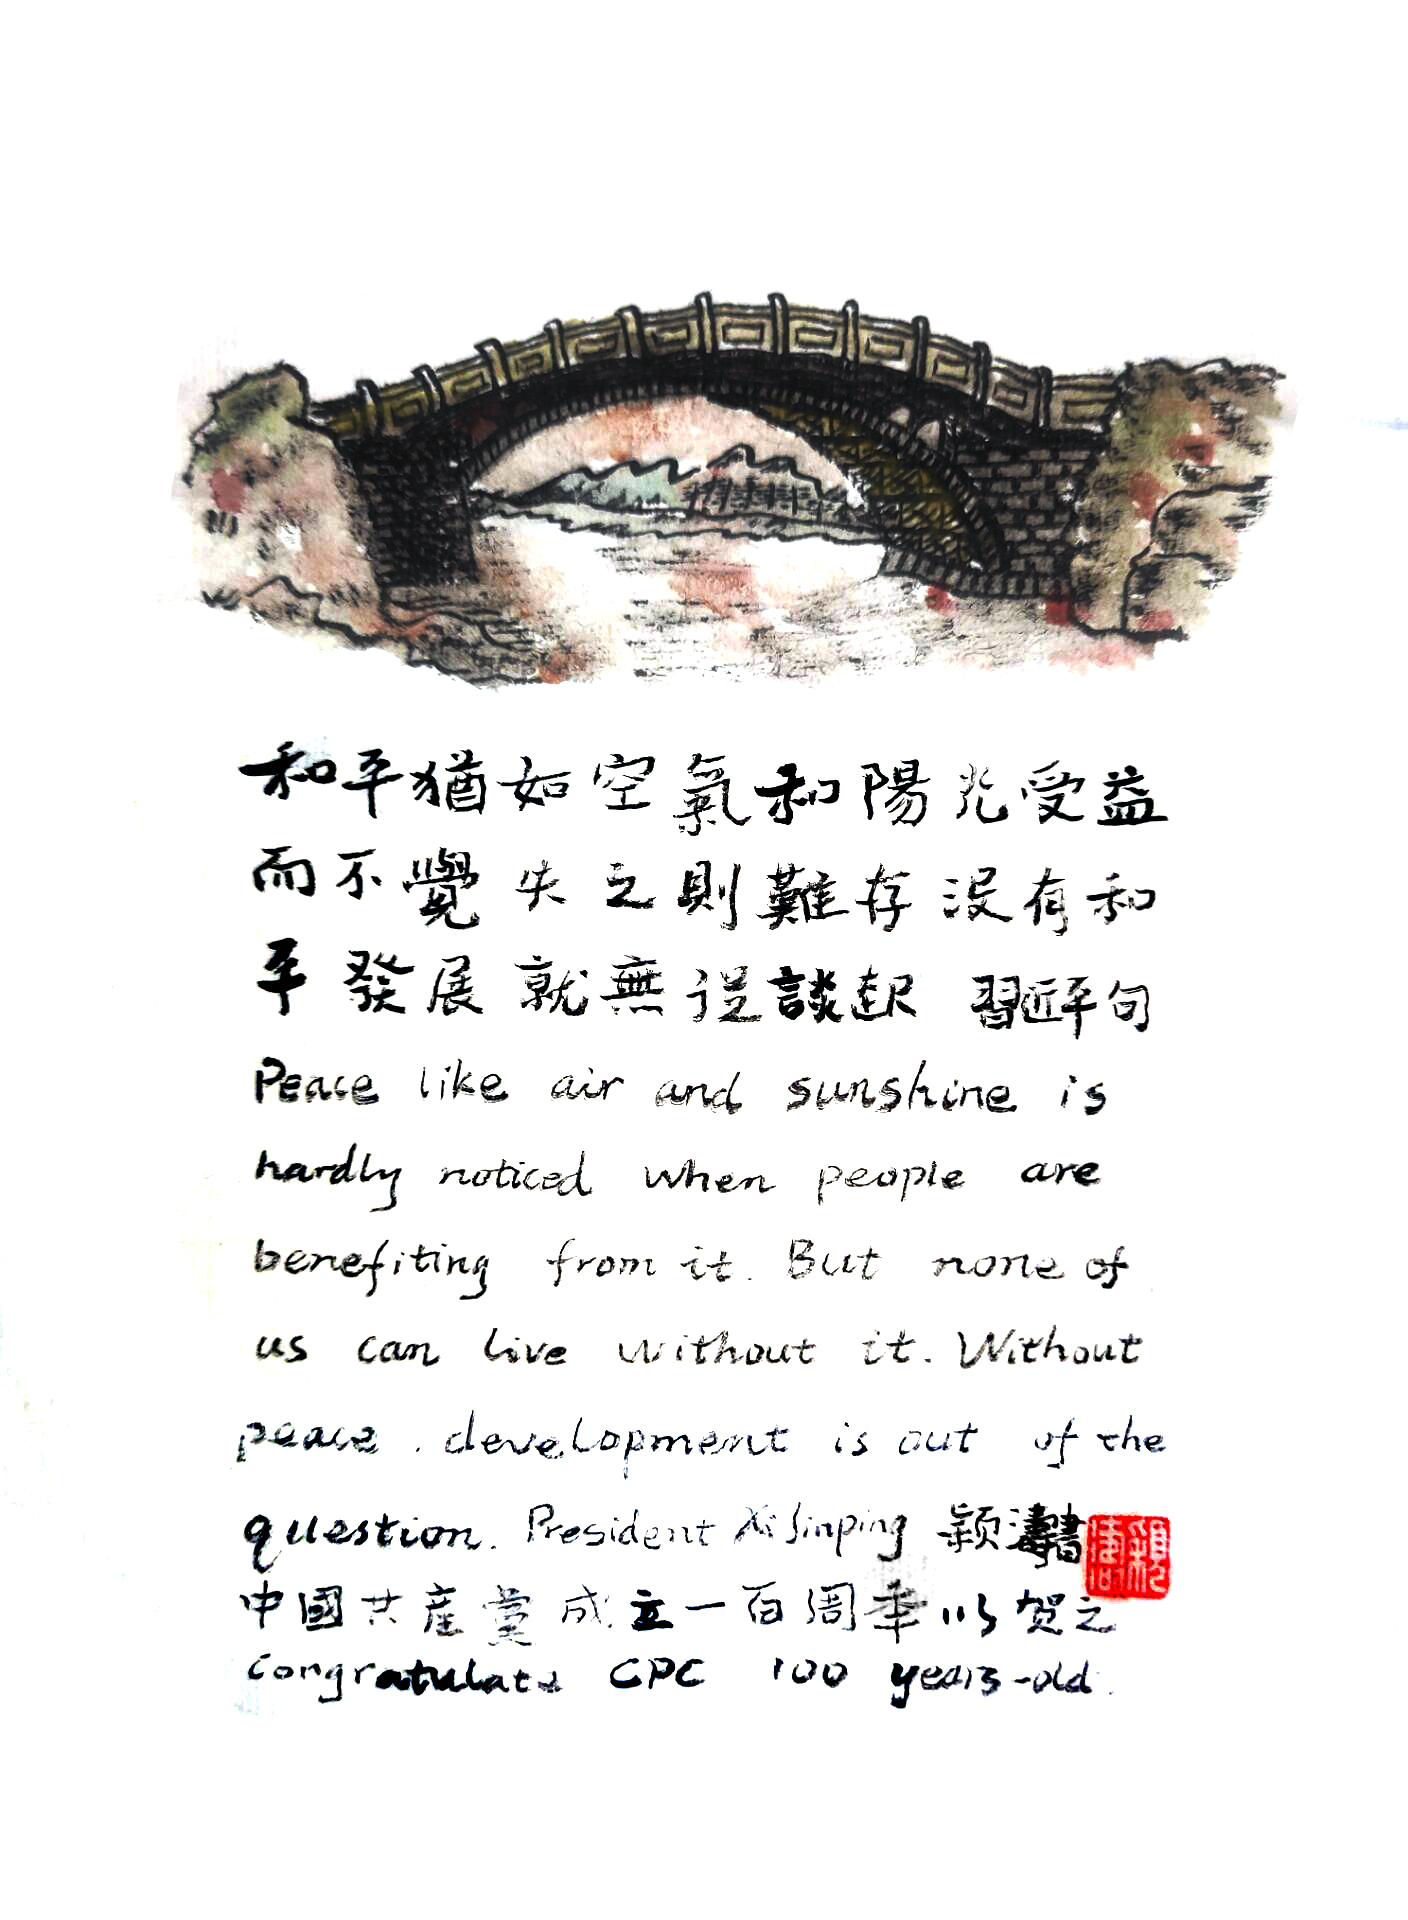 和平猶如空氣和陽光受益
而不覺失之則難存沒有和
平發展就無從談起 習近平句
Peace like air and sunshine is
hardly noticed when people are
benefiting from it. But none of
us can live without it. Without
peace, development is out of the
question. President Xi Jinping 颖濤書
中國共產黨成立一百周年以贺之
Congratulate CPC 100 years-old.